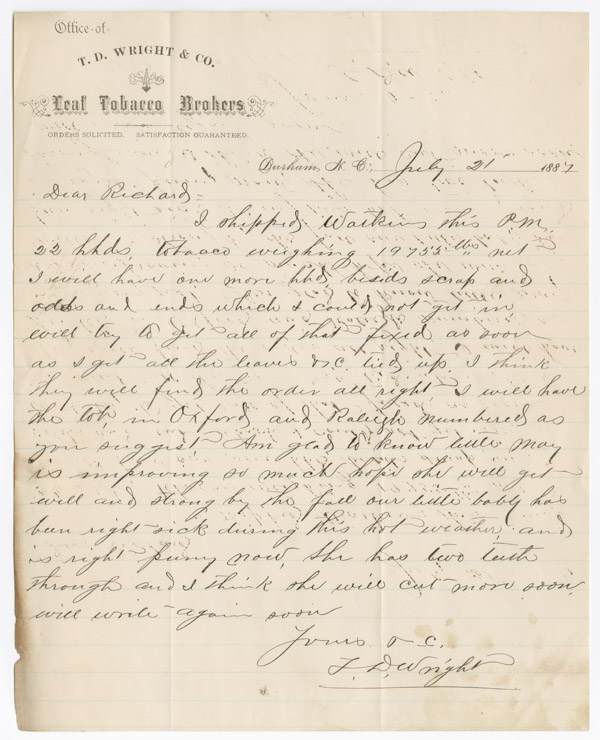 Office of
T. D. WRIGHT & CO.
Leaf Tobacco Brokers
ORDERS SOLICITED. SATISFACTION GUARANTEED.
Durham, N. C., July 21 1887
Dear Richard
I shipped Watkins this P.M.
22 hhds. tobacco weighing 19755 lbs net
I will have one more hhd. besids scrap and
odds and ends which I could not get in
will try to get all of that fixed as soon
as I get all the leaves &c. tied up. I think
they will find the order all right I will have
the tob. in Oxford and Raleigh numbered as
you suggest Am glad to know little May
is improving so much hope she will get
well and strong by the fall our little baby has
been right sick during this hot weather and
is right puny now, she has two teeth
through and I think she will cut more soon.
will write again soon
Yours &c.
T. D. Wright